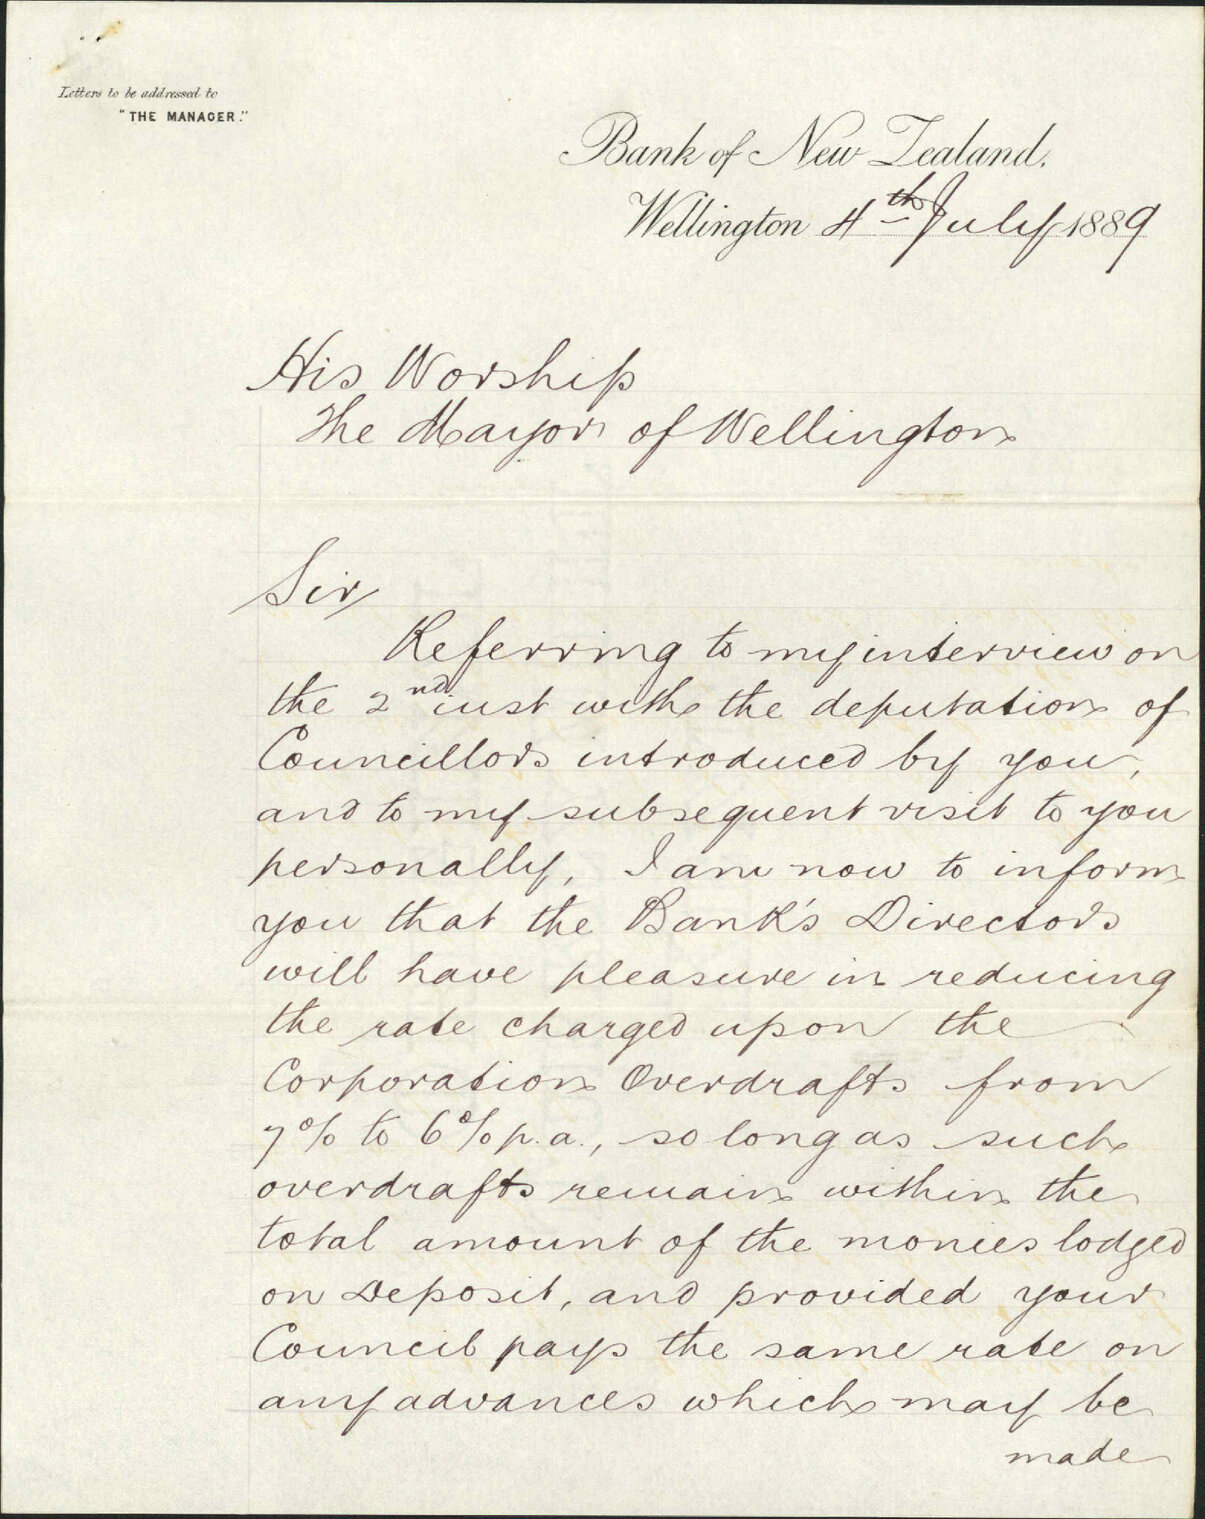 Letters to be addressed to
"THE MANAGER."
Bank of New Zealand.
Wellington 4th July 1889
His Worship
The Mayor of Wellington
Sir
Referring to my interview on
the 2nd inst with the deputation of
Councillors introduced by you,
and to my subsequent visit to you
personally, I am now to inform
you that the Bank's Directors
will have pleasure in reducing
the rate charged upon the
Corporation Overdrafts from
7% to 6% p.a., so long as such
overdrafts remain within the
total amount of the monies lodged
on Deposit, and provided your
Council pays the same rate on
any advances which may be
made